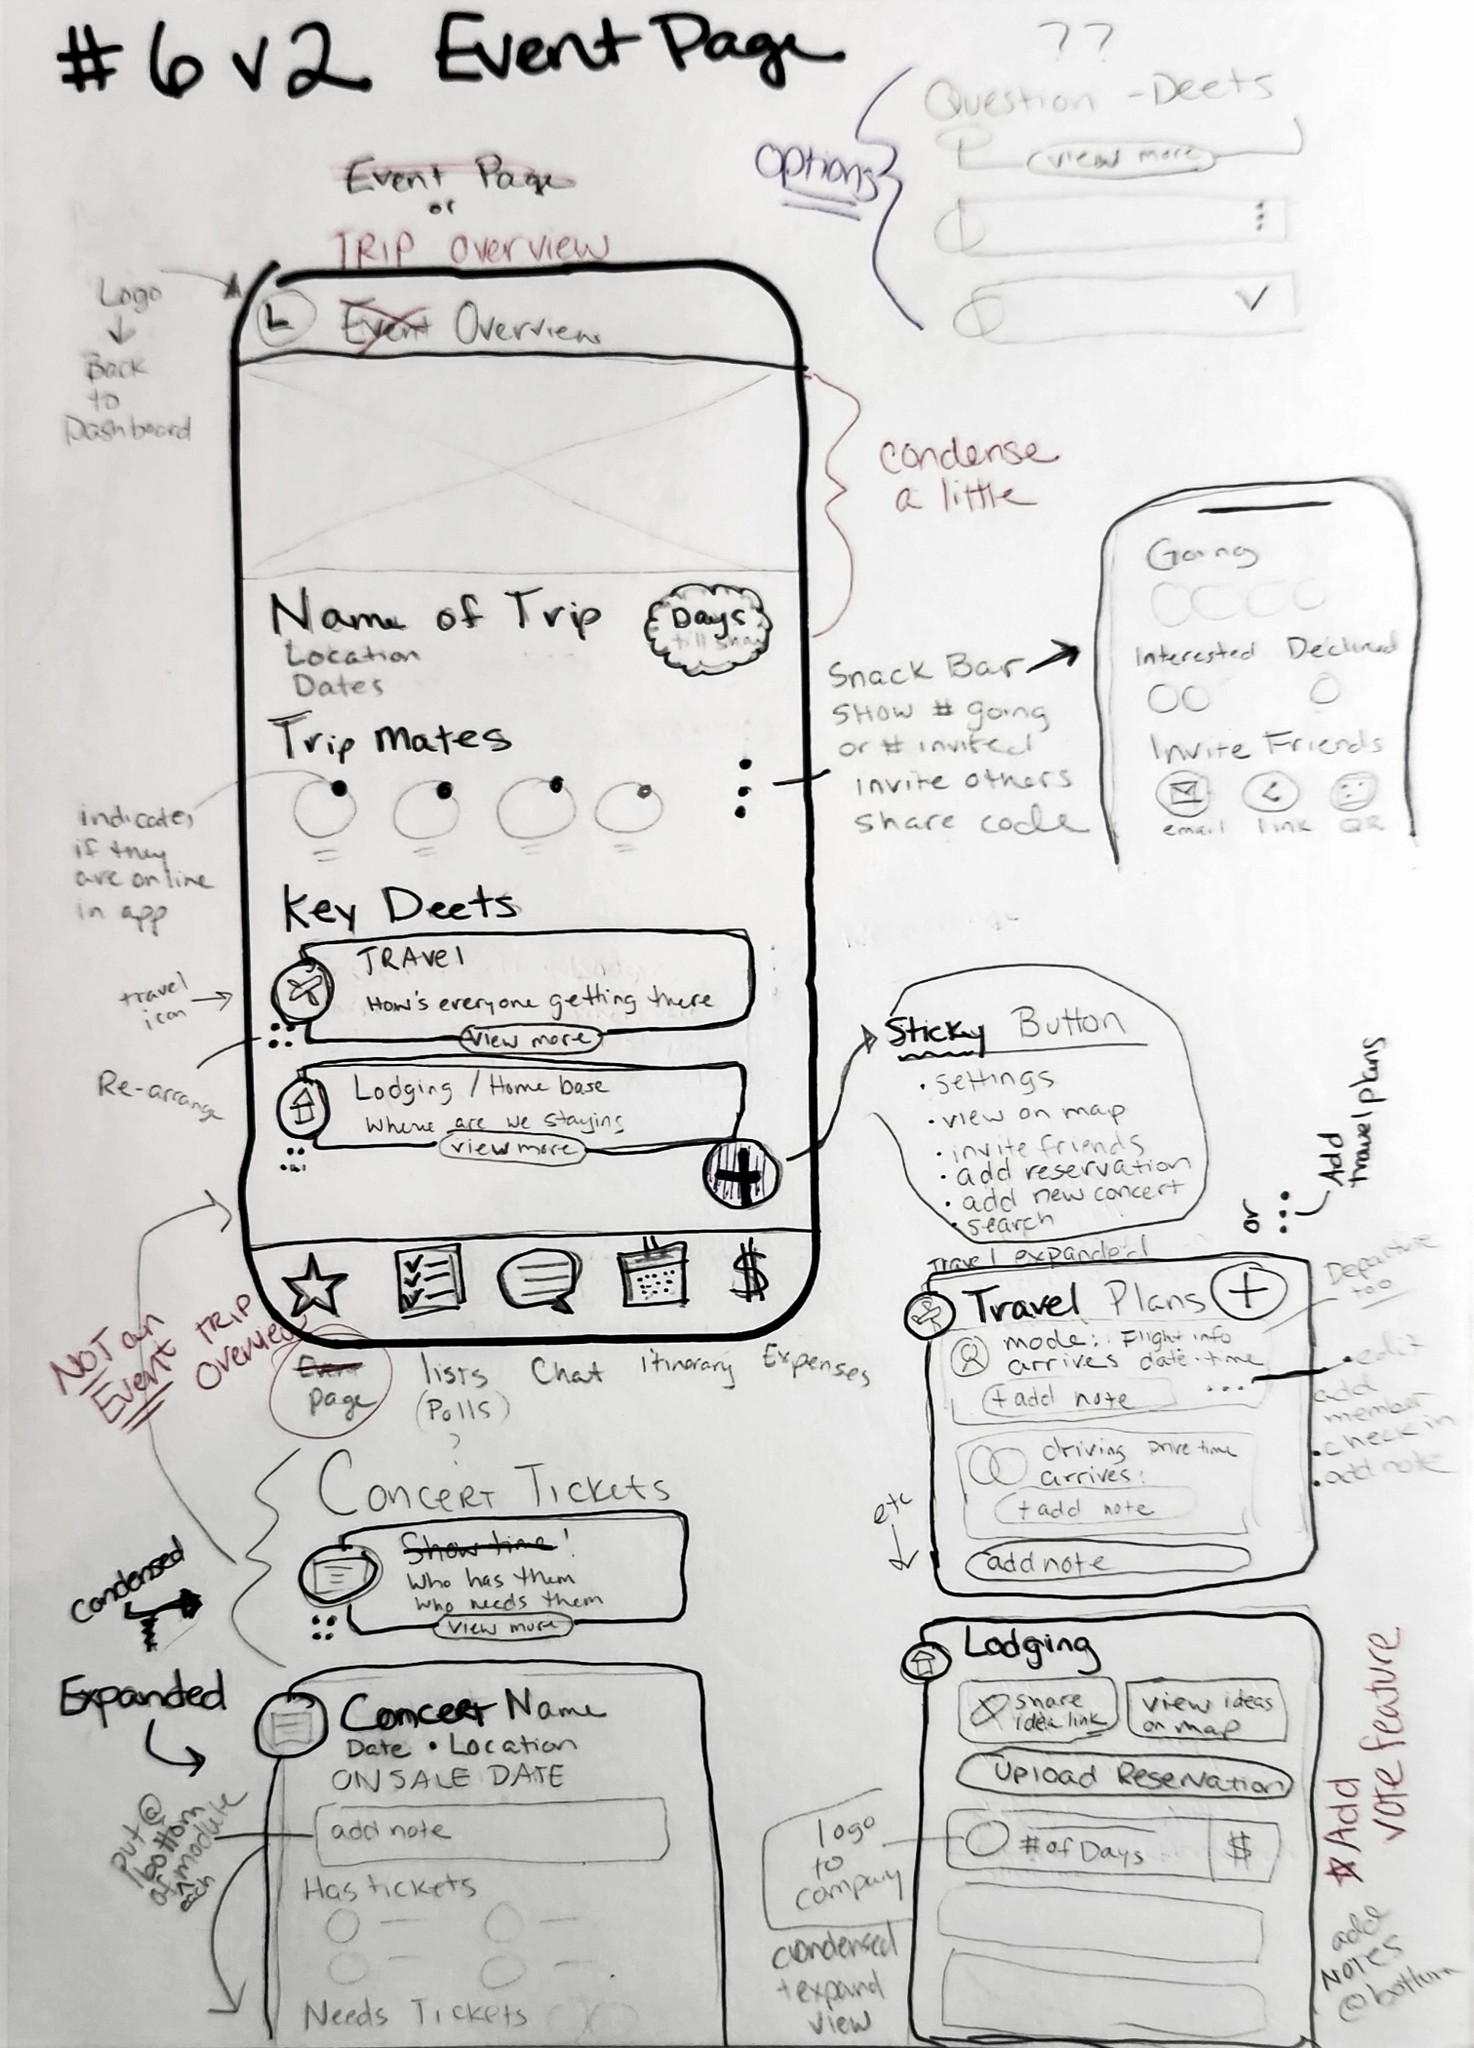 #6 v2 Event Page
??
Question - Deets
view more
Options
Event Page
or
TRIP Overview
Logo
Back
to
Dashboard
L
Event Overview
condense
a little
Name of Trip
Location
Dates
Days
till show
Trip Mates
indicates
if they
are online
in app
Snack Bar
SHOW # going
or # invited
invite others
share code
Going
Interested Declined
Invite Friends
email link QR
Key Deets
TRAVEL
How's everyone getting there
View more
travel
icon
Re-arrange
Lodging / Home base
Where are we staying
view more
Sticky Button
• settings
• view on map
• invite friends
• add reservation
• add new concert
• search
or
Add
travel plans
NOT an
Event TRIP
Overview
Event
page
lists
(Polls)
?
Chat
Itinerary
Expenses
$
Travel expanded
Travel Plans
mode: Flight info
arrives date · time
+ add note
Departure
too
• edit
add
member
• check in
• add note
driving Drive time
arrives:
+ add note
add note
etc
Concert Tickets
Show time!
Who has them
Who needs them
View more
Condensed
Expanded
Concert Name
Date • Location
ON SALE DATE
add note
put @
bottom
of each module
Has tickets
Needs Tickets
Lodging
share
idea link
view ideas
on map
Upload Reservation
# of Days
$
logo
to
company
condensed
+ expand
view
Add
vote feature
add
NOTES
@ bottom